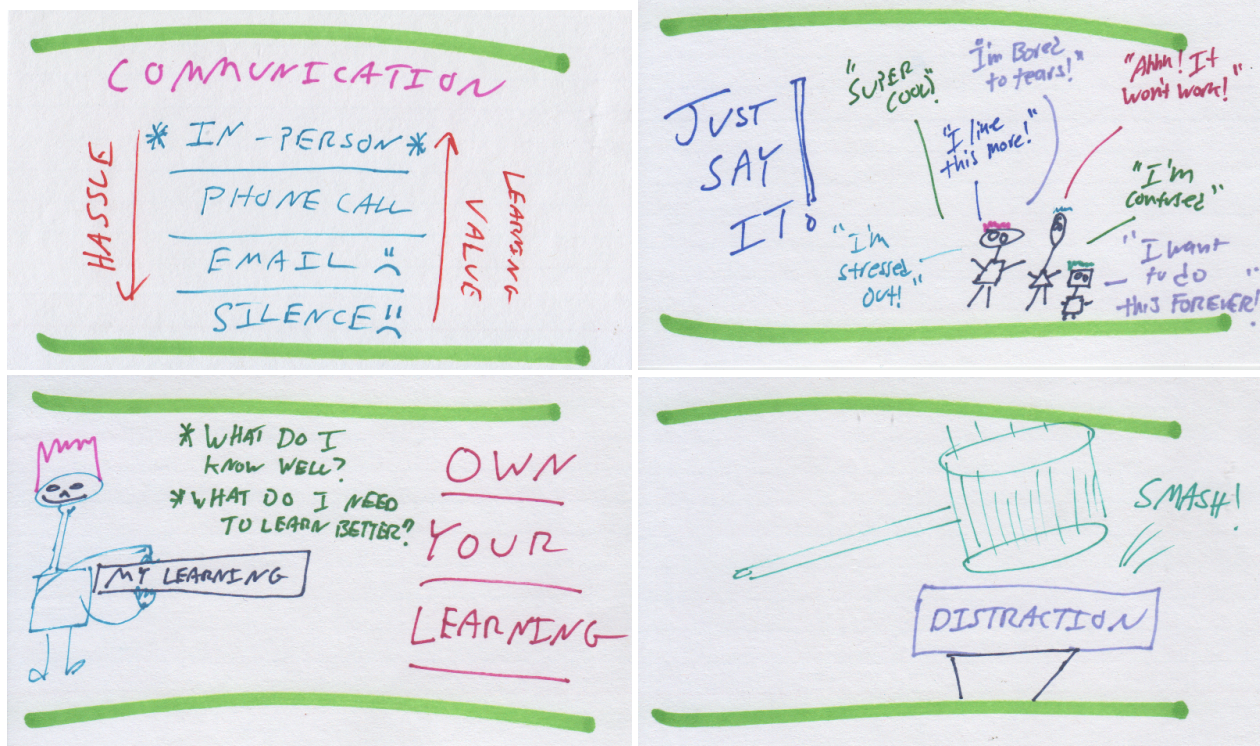 COMMUNICATION
HASSLE
* IN-PERSON *
PHONE CALL
EMAIL
SILENCE
LEARNING
VALUE
JUST
SAY
IT!
"SUPER
COOL!"
"I'm Bored
to tears!"
"Ahhh! It
won't work!"
"I like
this more!"
"I'm
confused"
"I'm
stressed
OUT!"
"I want
to do
this FOREVER!"
* WHAT DO I
KNOW WELL?
* WHAT DO I NEED
TO LEARN BETTER?
MY LEARNING
OWN
YOUR
LEARNING
SMASH!
DISTRACTION